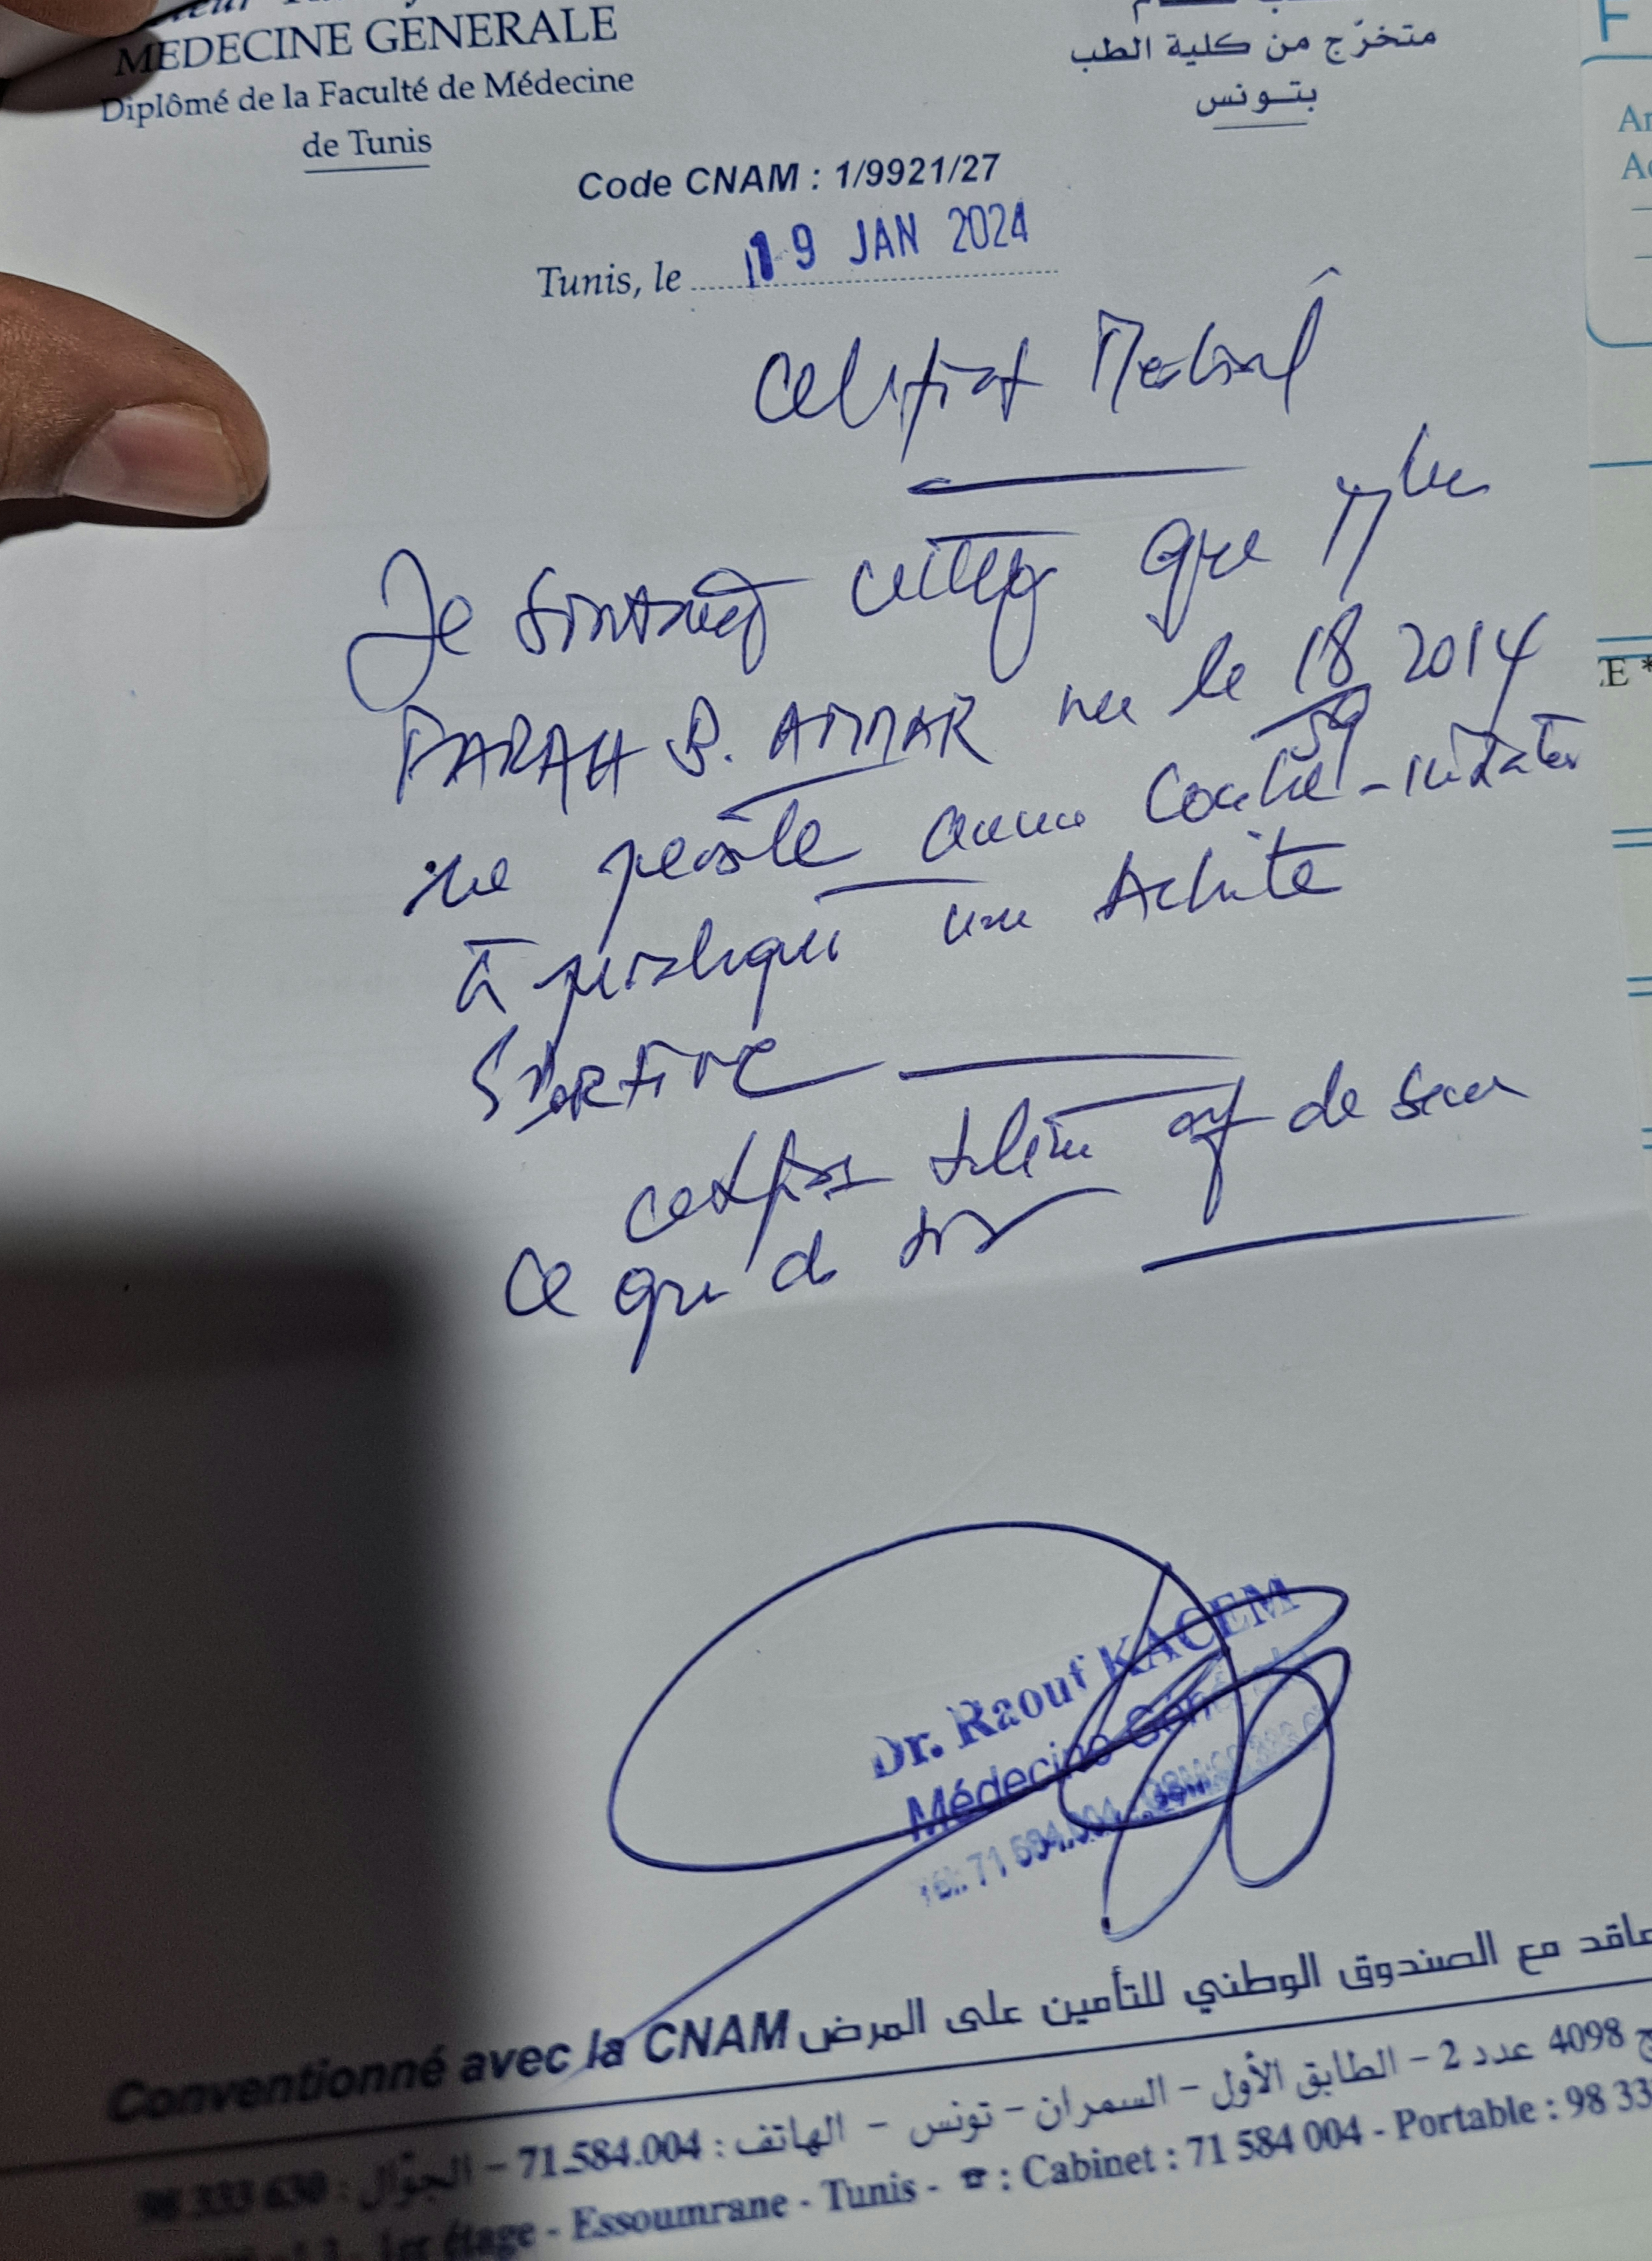 MEDECINE GENERALE
Diplômé de la Faculté de Médecine
de Tunis
متخرّج من كلية الطب
بتونس
Code CNAM : 1/9921/27
Tunis, le 19 JAN 2024
Certificat Médical
Je soussigné certifie que
FARAH B. AMMAR née le 18 2014
ne présente aucune contre-indication
à pratiquer une Activité
SPORTIVE
certificat délivré de
ce que de
Dr. Raouf KACEM
Médecine Générale
Tél: 71 584.004
Conventionné avec la CNAM مع الصندوق الوطني للتأمين على المرض
4098 عدد 2 - الطابق الأول - السمران - تونس - الهاتف : 71.584.004 - الجوّال : 98 333 630
1er étage - Essoumrane - Tunis - ☎ : Cabinet : 71 584 004 - Portable : 98 33